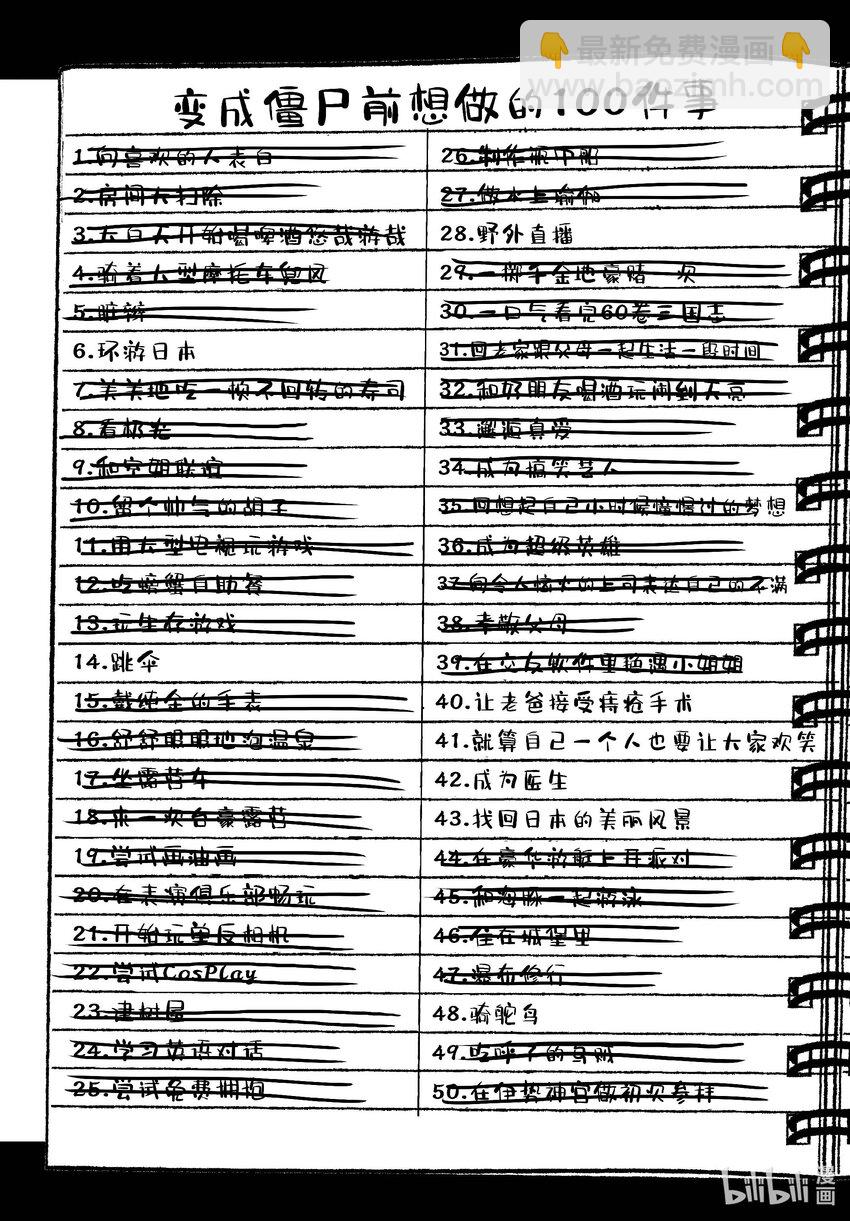 最新免费漫画
www.baozimh.com
变成僵尸前想做的100件事
1.向喜欢的人表白
2.房间大扫除
3.大白天开始喝啤酒悠哉游哉
4.骑着大型摩托车兜风
5.脏辫
6.环游日本
7.美美地吃一顿不回转的寿司
8.看极光
9.和空姐联谊
10.留个帅气的胡子
11.用大型电视玩游戏
12.吃螃蟹自助餐
13.玩生存游戏
14.跳伞
15.戴纯金的手表
16.舒舒服服地泡温泉
17.坐露营车
18.来一次自豪露营
19.尝试画油画
20.在表演俱乐部畅玩
21.开始玩单反相机
22.尝试CosPlay
23.建树屋
24.学习英语对话
25.尝试免费拥抱
26.制作瓶中船
27.做水上瑜伽
28.野外直播
29.一掷千金地豪赌一次
30.一口气看完60卷三国志
31.回老家跟父母一起生活一段时间
32.和好朋友喝酒玩闹到天亮
33.邂逅真爱
34.成为搞笑艺人
35.回想起自己小时候憧憬过的梦想
36.成为超级英雄
37.向令人恼火的上司表达自己的不满
38.孝敬父母
39.在交友软件里艳遇小姐姐
40.让老爸接受痔疮手术
41.就算自己一个人也要让大家欢笑
42.成为医生
43.找回日本的美丽风景
44.在豪华游艇上开派对
45.和海豚一起游泳
46.住在城堡里
47.瀑布修行
48.骑鸵鸟
49.吃呼子的乌贼
50.在伊势神宫做初次参拜
bilibili漫画